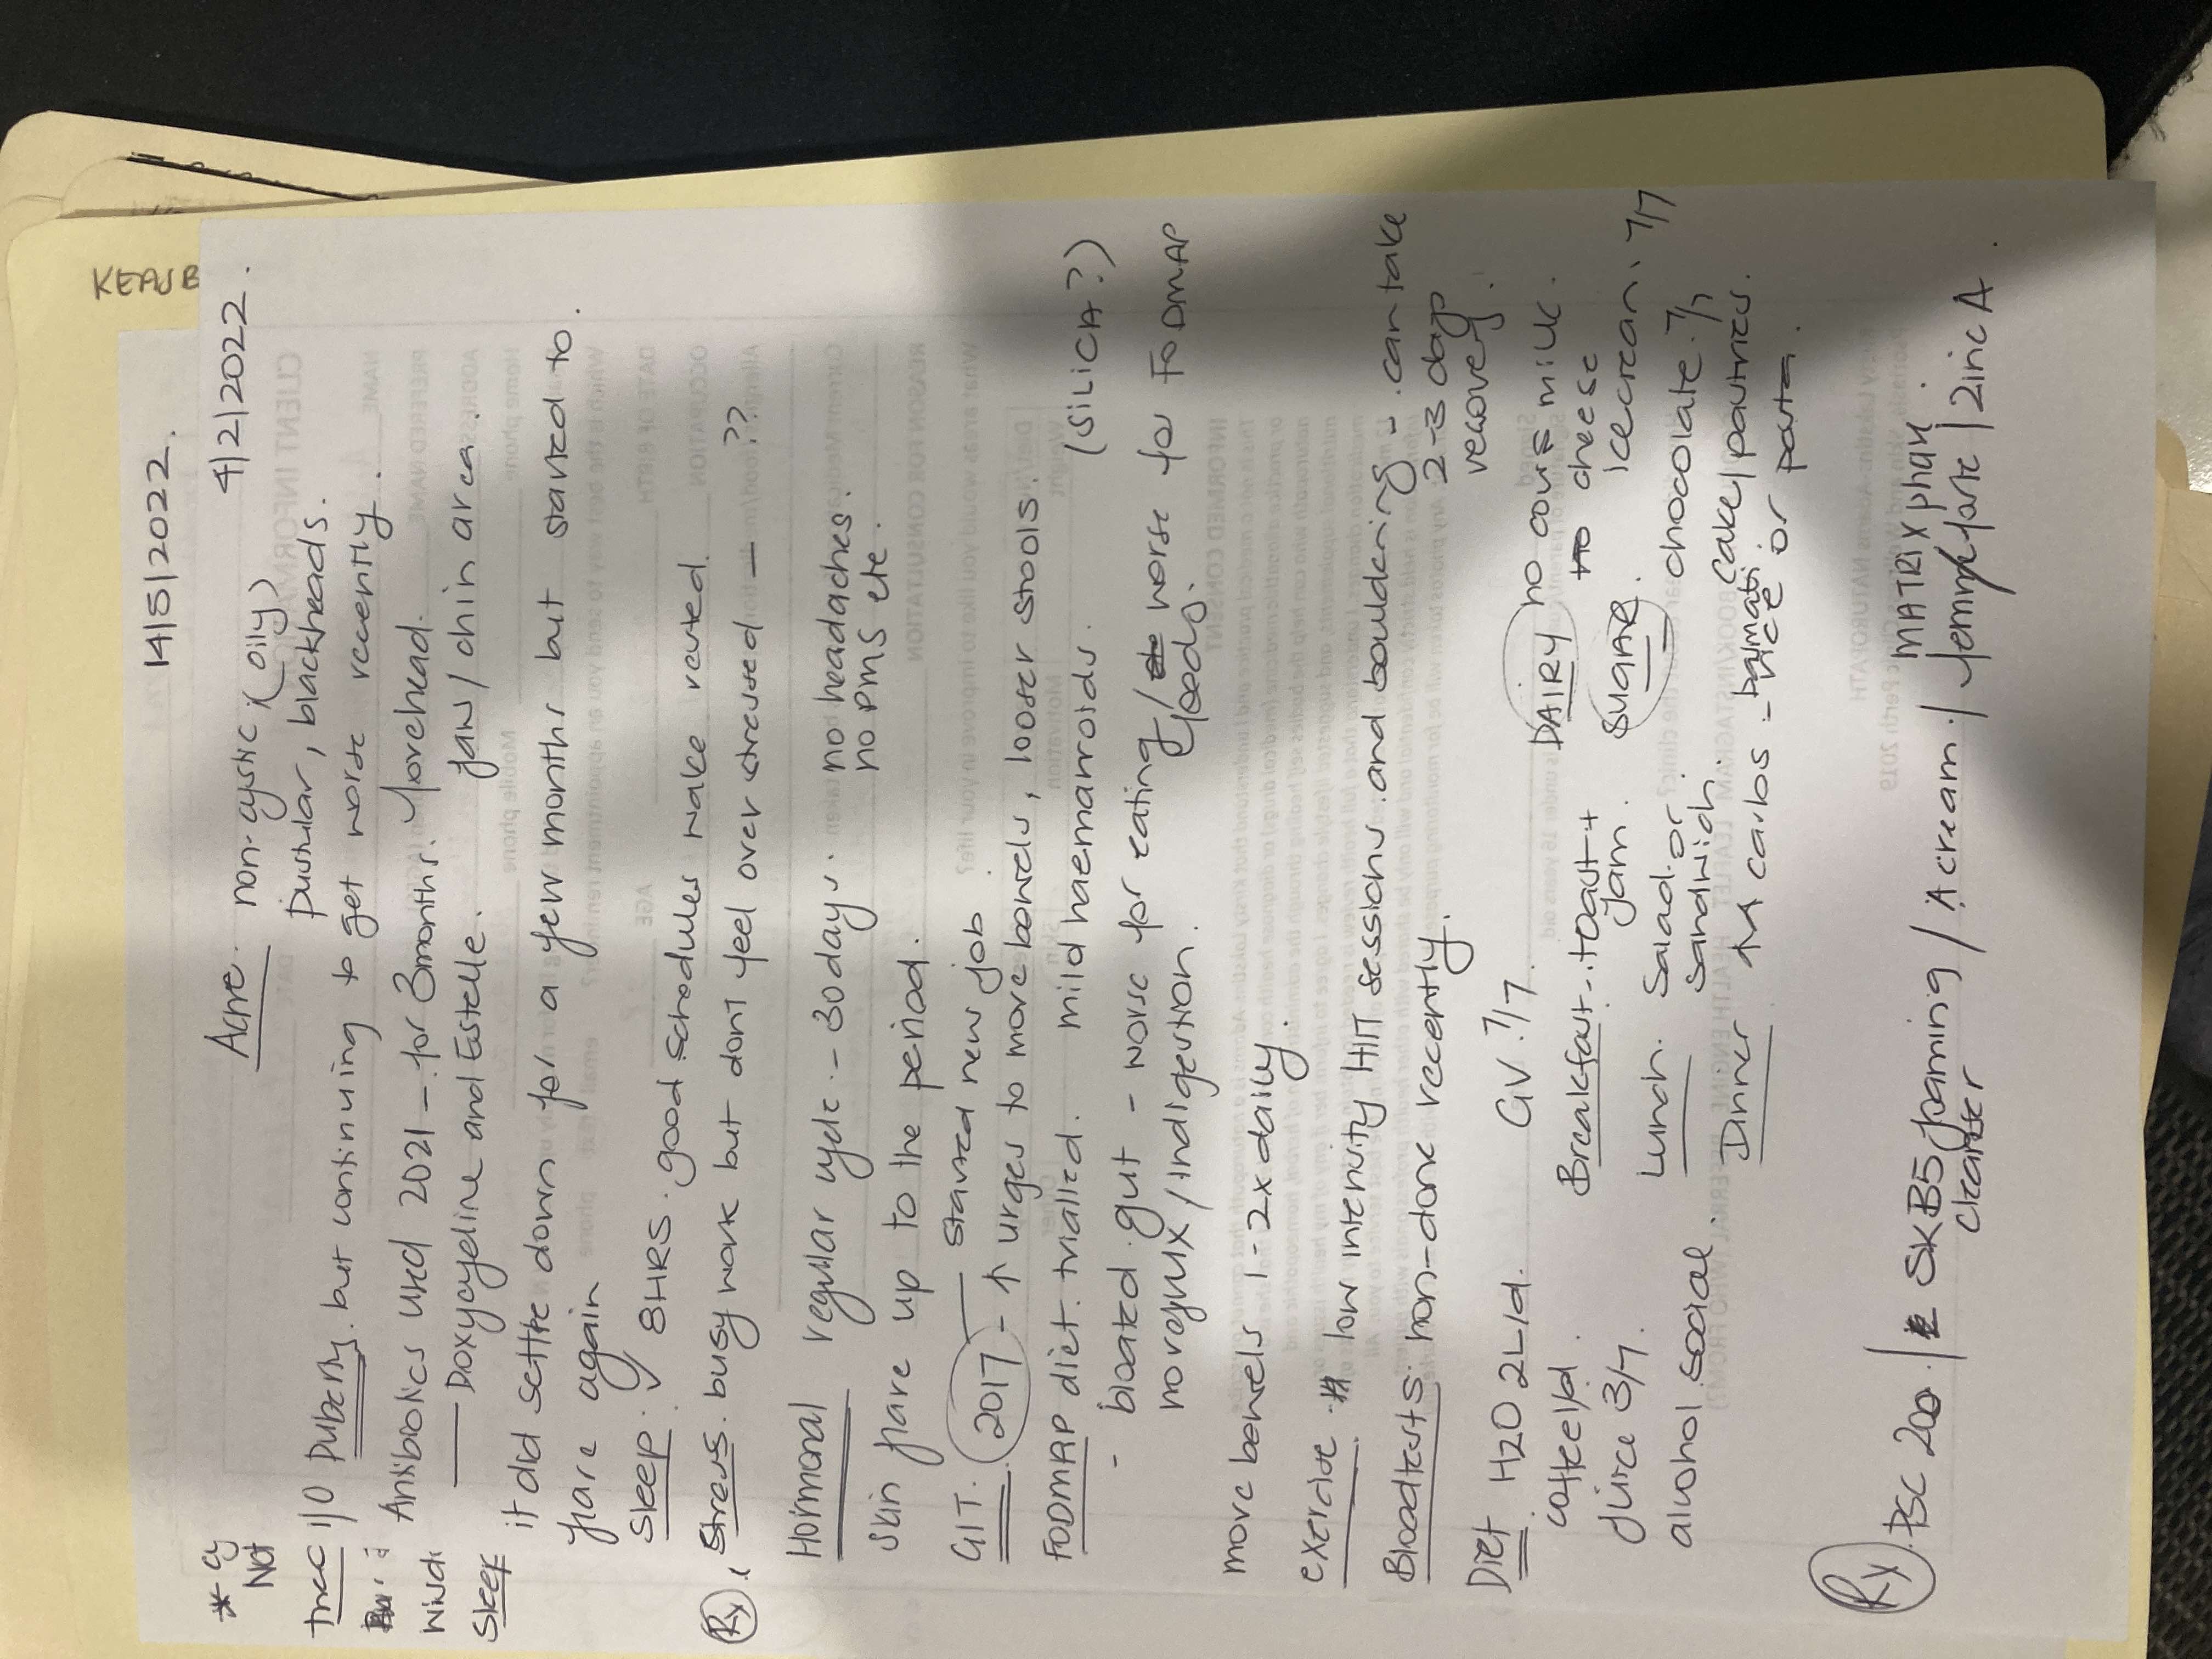 KEAJB
14/5/2022.
4/2/2022.
Acne. non-cystic (oily)
pustular, blackheads.
i/o puberty. but continuing to get worse recently.
Antibiotics used 2021 - for 3months. forehead.
Doxycycline and Estelle. jaw/chin area.
it did settle down for a few months but started to
flare again
Sleep. ✓ 8HRS. good schedules wake rested.
Stress. busy work but dont feel over stressed - ??
Hormonal regular cycle - 30 days. no headaches.
no PMS etc.
skin flare up to the period.
GIT. 2017 - started new job
↑ urges to more bowels, looser stools.
FODMAP diet. trialled. mild haemarroids. (SILICA?)
- bloated gut - worse for eating / worse for FODMAP
foods.
no reflux/indigestion.
move bowels 1-2x daily.
exercise. low intensity HIIT sessions and bouldering - can take
2-3 days
recovery.
Bloodtests. non-done recently.
Diet H2O 2L/d. GV 7/7. DAIRY no cows milk.
coffee 1/d. Breakfast - toast + cheese
jam. icecream. 7/7
juice 3/7. SUGAR.
Lunch. Salad or chocolate 7/7
alcohol social. sandwich. cake/pastries.
Dinner carbs - basmati
rice or
pasta.
Rx PSC 200 / SKB5 foaming / A cream / femmeforte / zinc A
cleanser
MATRIX phase.
* cy
Not
tree
wind
Sleep
Rx